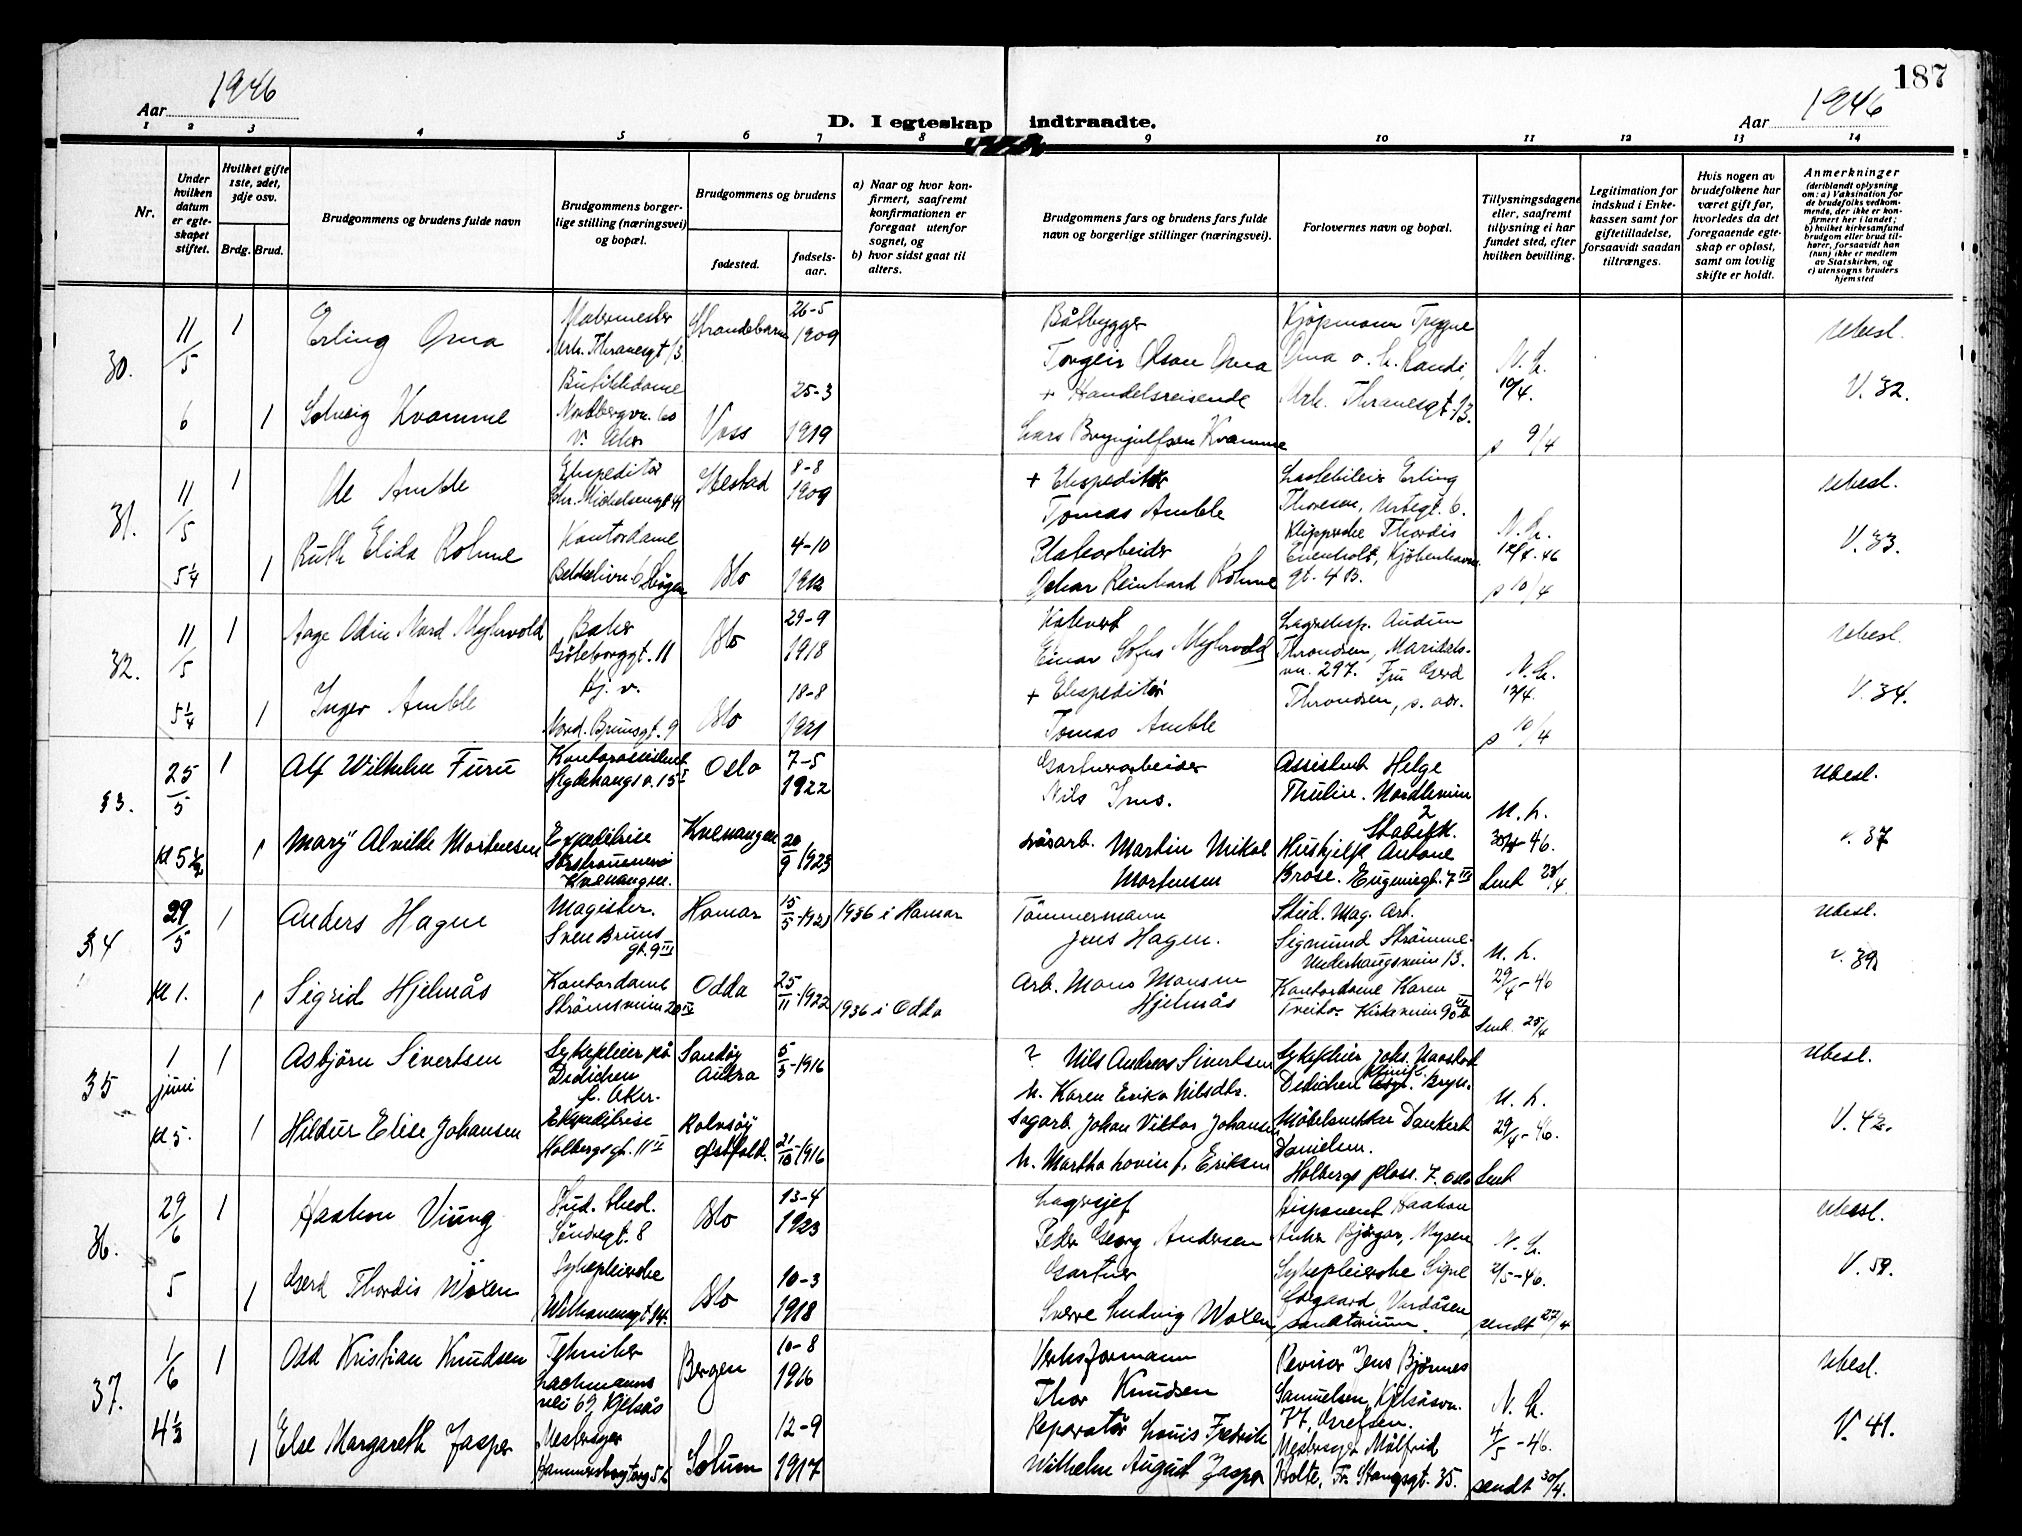 187
Aar 1946
D. I egteskap indtraadte.
Aar 1946
1 2 3 4 5 6 7 8 9 10 11 12 13 14
Nr.
Under hvilken datum er egteskapet stiftet.
Hvilket gifte 1ste, 2det, 3dje osv.
Brdg. Brud.
Brudgommens og brudens fulde navn
Brudgommens borgerlige stilling (næringsvei) og bopæl.
Brudgommens og brudens
fødested.
fødselsaar.
a) Naar og hvor konfirmert, saafremt konfirmationen er foregaat utenfor sognet, og
b) hvor sidst gaat til alters.
Brudgommens fars og brudens fars fulde navn og borgerlige stillinger (næringsvei).
Forlovernes navn og bopæl.
Tillysningsdagene eller, saafremt tillysning ei har fundet sted, efter hvilken bevilling.
Legitimation for indskud i Enkekassen samt for giftetilladelse, forsaavidt saadan tiltrænges.
Hvis nogen av brudefolkene har været gift før, hvorledes da det foregaaende egteskap er opløst, samt om lovlig skifte er holdt.
Anmerkninger
(deriblandt oplysning om: a) Vaksination for de brudefolks vedkommende, der ikke er konfirmert her i landet; b) hvilket kirkesamfund brudgom eller brud tilhører, forsaavidt han (hun) ikke er medlem av Statskirken, og c) utensogns bruders hjemsted
30. 11/5 6
1 Erling Oma
Malermester
Mrk. Thranesgt 13
Strandebarm
26-5
1909
Båtbygger
Torgeir Olson Oma
Kjøpmann Trygve
Oma o. h. Randi,
Mrk. Thranesgt. 13.
N. L.
10/4.
s 9/4
Ubesl.
V. 32.
1 Solveig Kvamme
Butikkdame
Nordbergvn. 60
V. Aker
Voss
25-3
1919
+ Handelsreisende
Lars Brynjulfsen Kvamme
31. 11/5 5 1/4
1 Ole Amble
Ekspeditør
Chr. Michelsensgt 4
8-8
1909
+ Ekspeditør
Tomas Amble
Lastebileier Erling
Thoresen, Urtegt. 6.
Klipperske Thordis
Evenholt, Kjøbenhavn
gt. 4 B.
N. L.
12/4. 46
s 10/4
Ubesl.
V. 33.
1 Ruth Elida Rohme
Kontordame
Oslo
4-10
1912
Platearbeider
Johan Reinhard Rohme
32. 11/5 5 1/4
1 Aage Odin Nord Myhrvold
Baker
Gøteborggt. 11
Oslo
29-9
1918
Einar Sofus Myhrvold
Lagereksp. Audun
Throndsen, Maridals-
vn. 297. Fru Gerd
Throndsen, s. adr.
N. L.
12/4.
s 10/4
Ubesl.
V. 34.
1 Inger Amble
Hj. v.
Nord. Brunsgt. 9
Oslo
18-8
1921
+ Ekspeditør
Tomas Amble
33. 25/5 kl 5 1/2
1 Alf Wilhelm Furu
Kontorassistent
Oslo
7-5
1922
Gartnerarbeider
Nils Imo.
Assistent Helge
Thulin. Nordliveien
2
Stabekk.
Hushjelp Antone
Brose. Eugeniegt. 7 III
N. L.
30/4-46.
Sent 28/4
Ubesl.
v. 37
1 Mary Alvilde Mortensen
Expeditrise
Kvenangen.
Kvenangen
20/9 1923
Martin Nikol
Mortensen
34 29/5 kl 1.
1 Anders Hagen
Magister.
Sven Bruns
gt. 9 III
Hamar
15/5-1921
1936 i Hamar
Tömmermann
Jens Hagen.
Stud. Mag. Art.
Sigmund Strømme.
Underhaugsveien 13.
Kontordame Karen
Treitor. Kirkeveien 90 b
N. L.
29/4-46
Sent. 25/4
Ubesl.
v. 39
1 Sigrid Hjelmås
Kontordame
Strømsveien 20 IV
Odda
25/11-1922
1936 i Odda
Arb. Mons Monsen
Hjelmås
35 1 juni kl 5.
1 Asbjörn Sivertsen
Sykepleier på
Dedichen
kl. Aker.
Sandöy
Aukra
5/3-1916
? Nils Andreas Sivertsen
M. Karen Erika Nilsdtr.
Sykepleier Johs. Navstad
Dedichen klinik. Bryn.
Möbelsnekker Dankert
Danielsen.
Holbergs plass. 7. Oslo
N. L.
29/4-46.
Sent
Ubesl.
V. 42.
1 Hildur Elise Johansen
Ekspeditrise
Holbergsgt. 11 II
Rolvsöy
Østfold.
21/10-1916
Sagarb. Johan Viktor Johansen
M. Martha Lovise f. Eriksen
36. 29/6 5
1 Haakon Viung
Stud. theol.
Søndregt. 8
Oslo
13-4
1923
Lagersjef
Peder Georg Andersen
Disponent Haakon
Anker Bjørgar, Mysen
Sykepleierske Signe
Ødegaard, Vardåsen
sanatorium.
N. L.
2/5-46.
sendt 27/4
Ubesl.
V. 58.
1 Gerd Thordis Woxen
Sykepleierske
Oslo
10-3
1918
Gartner
Sverre Ludvig Woxen
37. 1/6 4 1/2
1 Odd Kristian Knudsen
Tekniker
Lachmanns
vei 69, Kjelsås
Bergen
10-8
1916
Verksformann
Thor Knudsen
Revisor Jens Bjørnes
Samuelsen, Kjelsåsvn.
77, Grefsen.
Mølfrid
Holte, Fr. Stangsgt. 35.
N. L.
4/5-46.
sendt 30/4.
Ubesl.
V. 41.
1 Else Margareth Jasper
Hammersborgtorg 5 b
Solum
12-9
1917
Reparatør Louis Fredrik
Wilhelm August Jasper